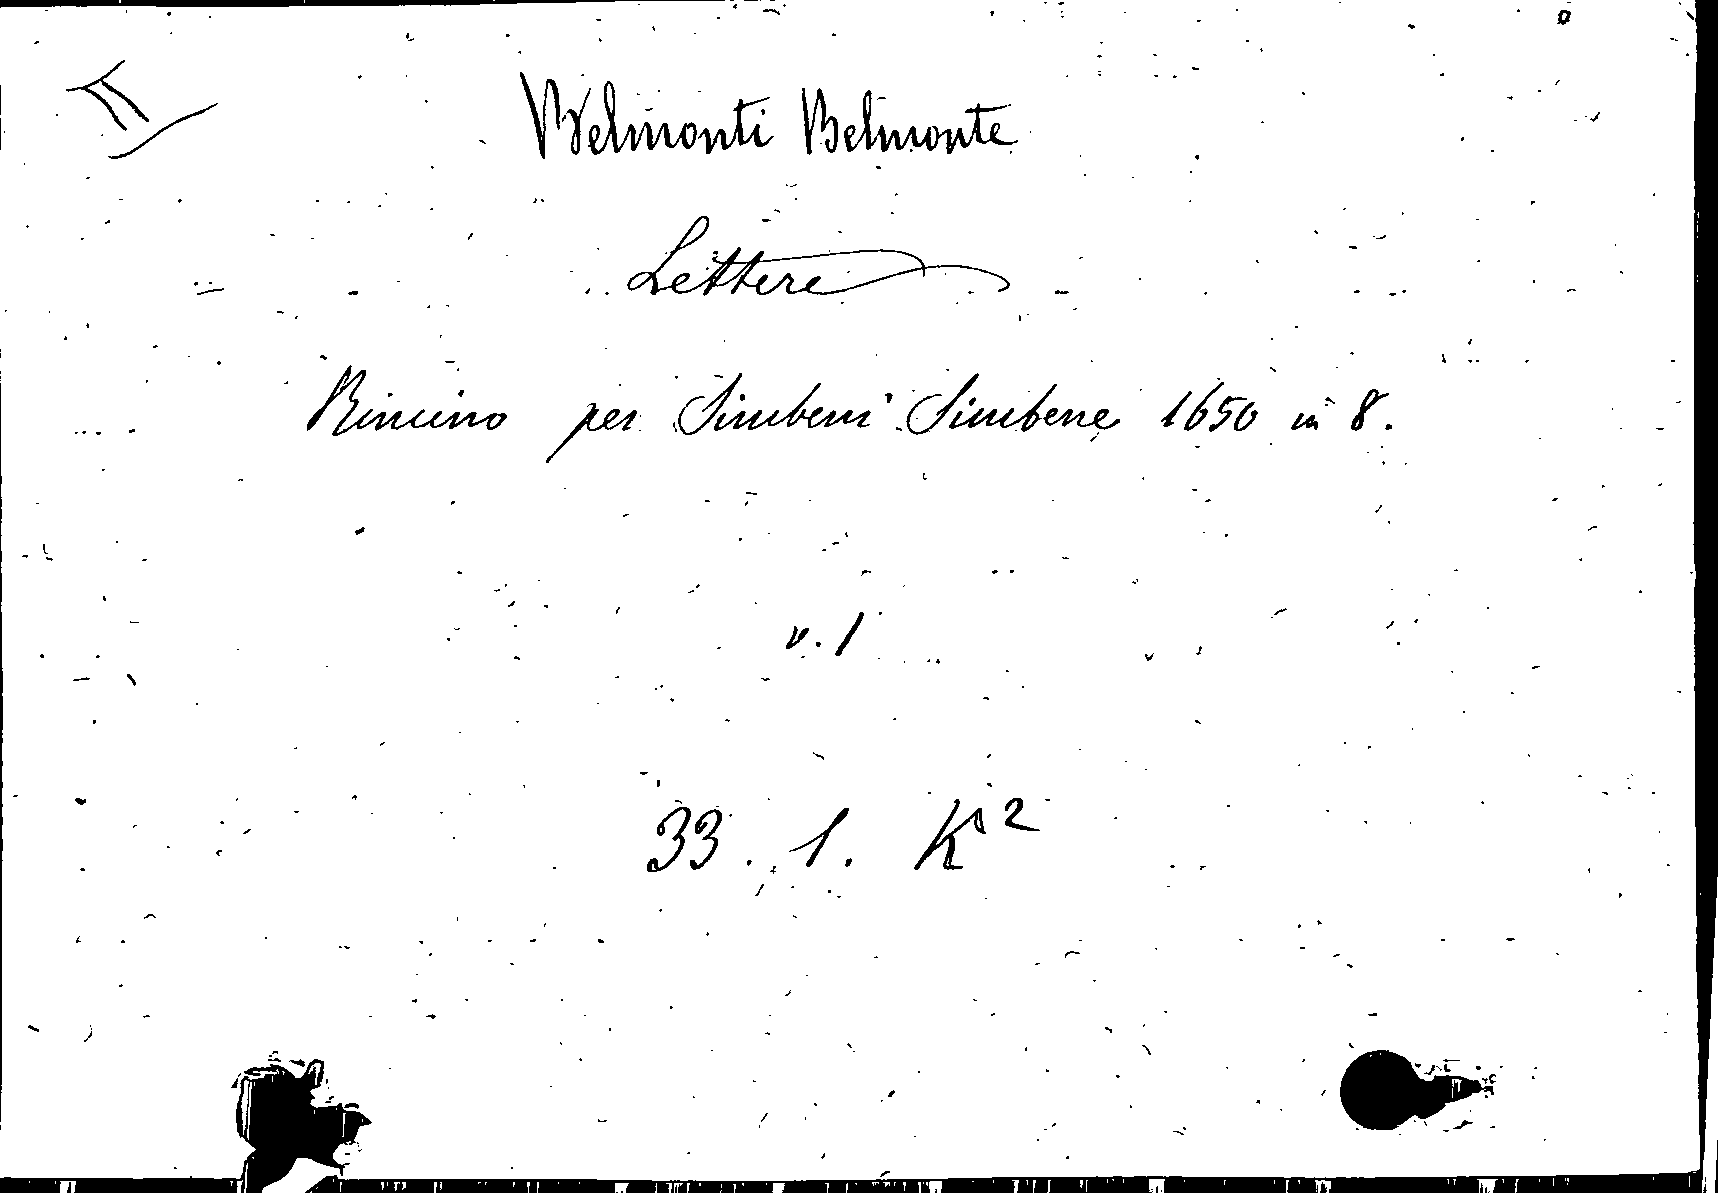 II
Belmonti Belmonte
Lettere
Rimino per Simbeni Simbene 1650 in 8.
v. 1
33. 1. K²